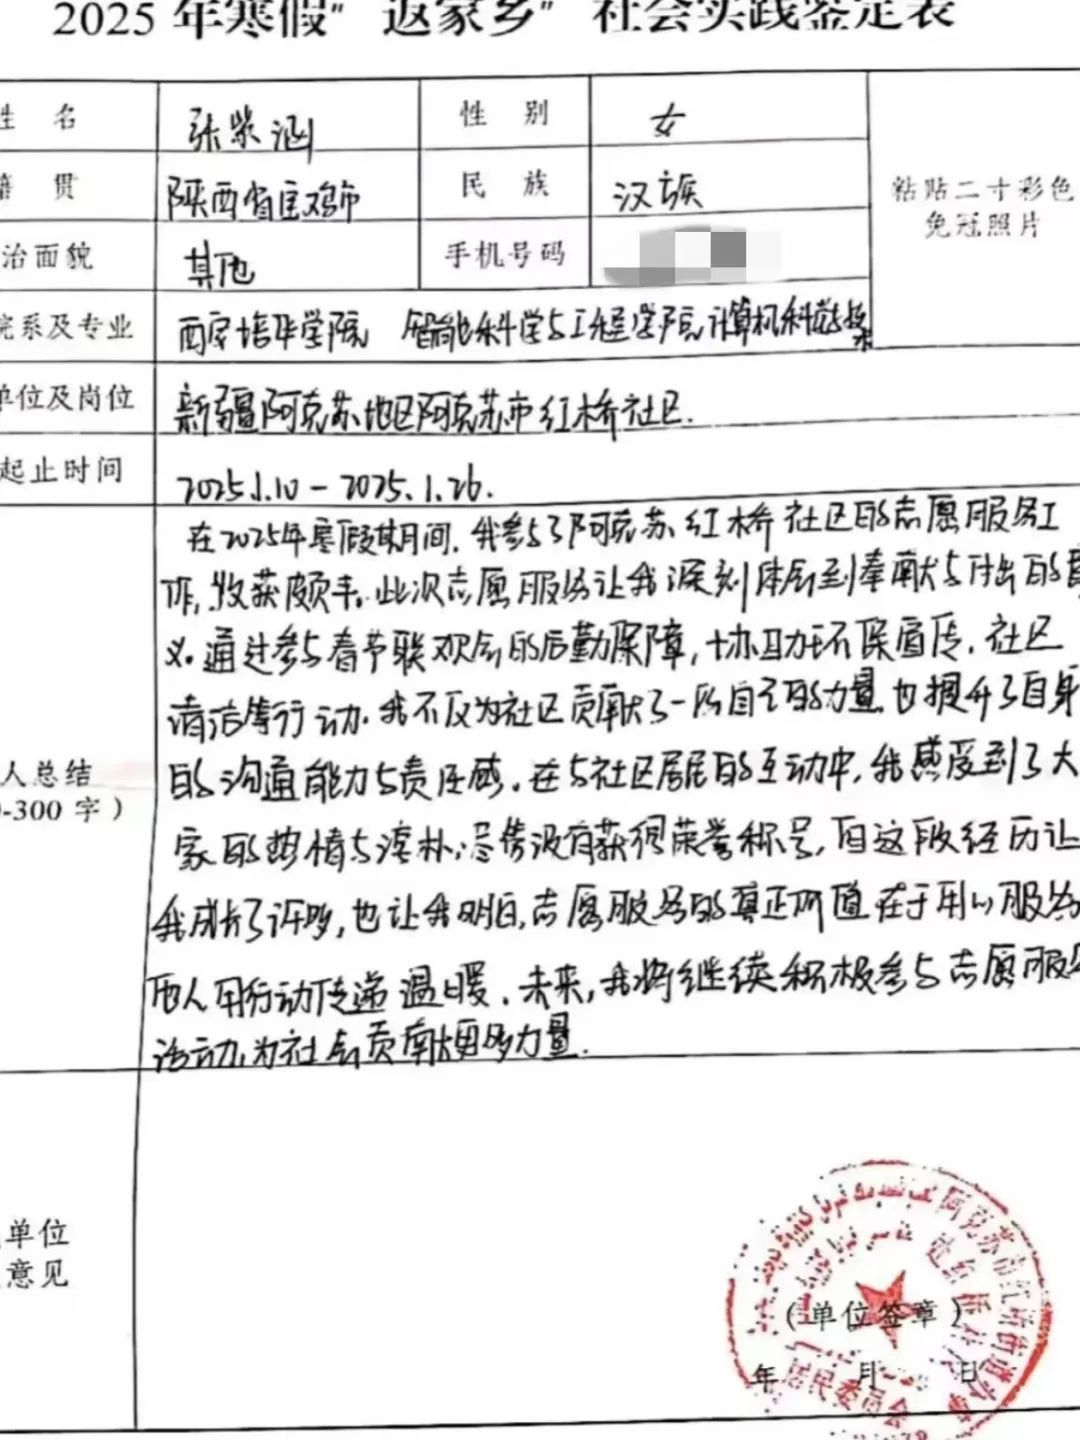 2025年寒假"返家乡"社会实践鉴定表
姓 名 张紫涵 性 别 女
籍 贯 陕西省宝鸡市 民 族 汉族 粘贴二寸彩色
免冠照片
治面貌 其他 手机号码
院系及专业 西安培华学院 智能科学与工程学院计算机科学与技术
单位及岗位 新疆阿克苏地区阿克苏市红桥社区.
起止时间 2025.1.10-2025.1.26.
在2025年寒假期间,我参与了阿克苏红桥社区的志愿服务工
作,收获颇丰。此次志愿服务让我深刻体会到奉献与付出的意
义。通过参与春节联欢会的后勤保障,协助环保宣传、社区
清洁等行动,我不仅为社区贡献了一份自己的力量,也提升了自身
的沟通能力与责任感。在与社区居民的互动中,我感受到了大
人总结
-300字)
家的热情与淳朴,尽管没有获得荣誉称号,但这段经历让
我成长了许多,也让我明白,志愿服务的真正价值在于用心服务
他人用行动传递温暖。未来,我将继续积极参与志愿服务
活动,为社会贡献更多力量.
单位
意见
(单位签章)
年 月 日
阿克苏市红桥街道办事
社区
居民委员会